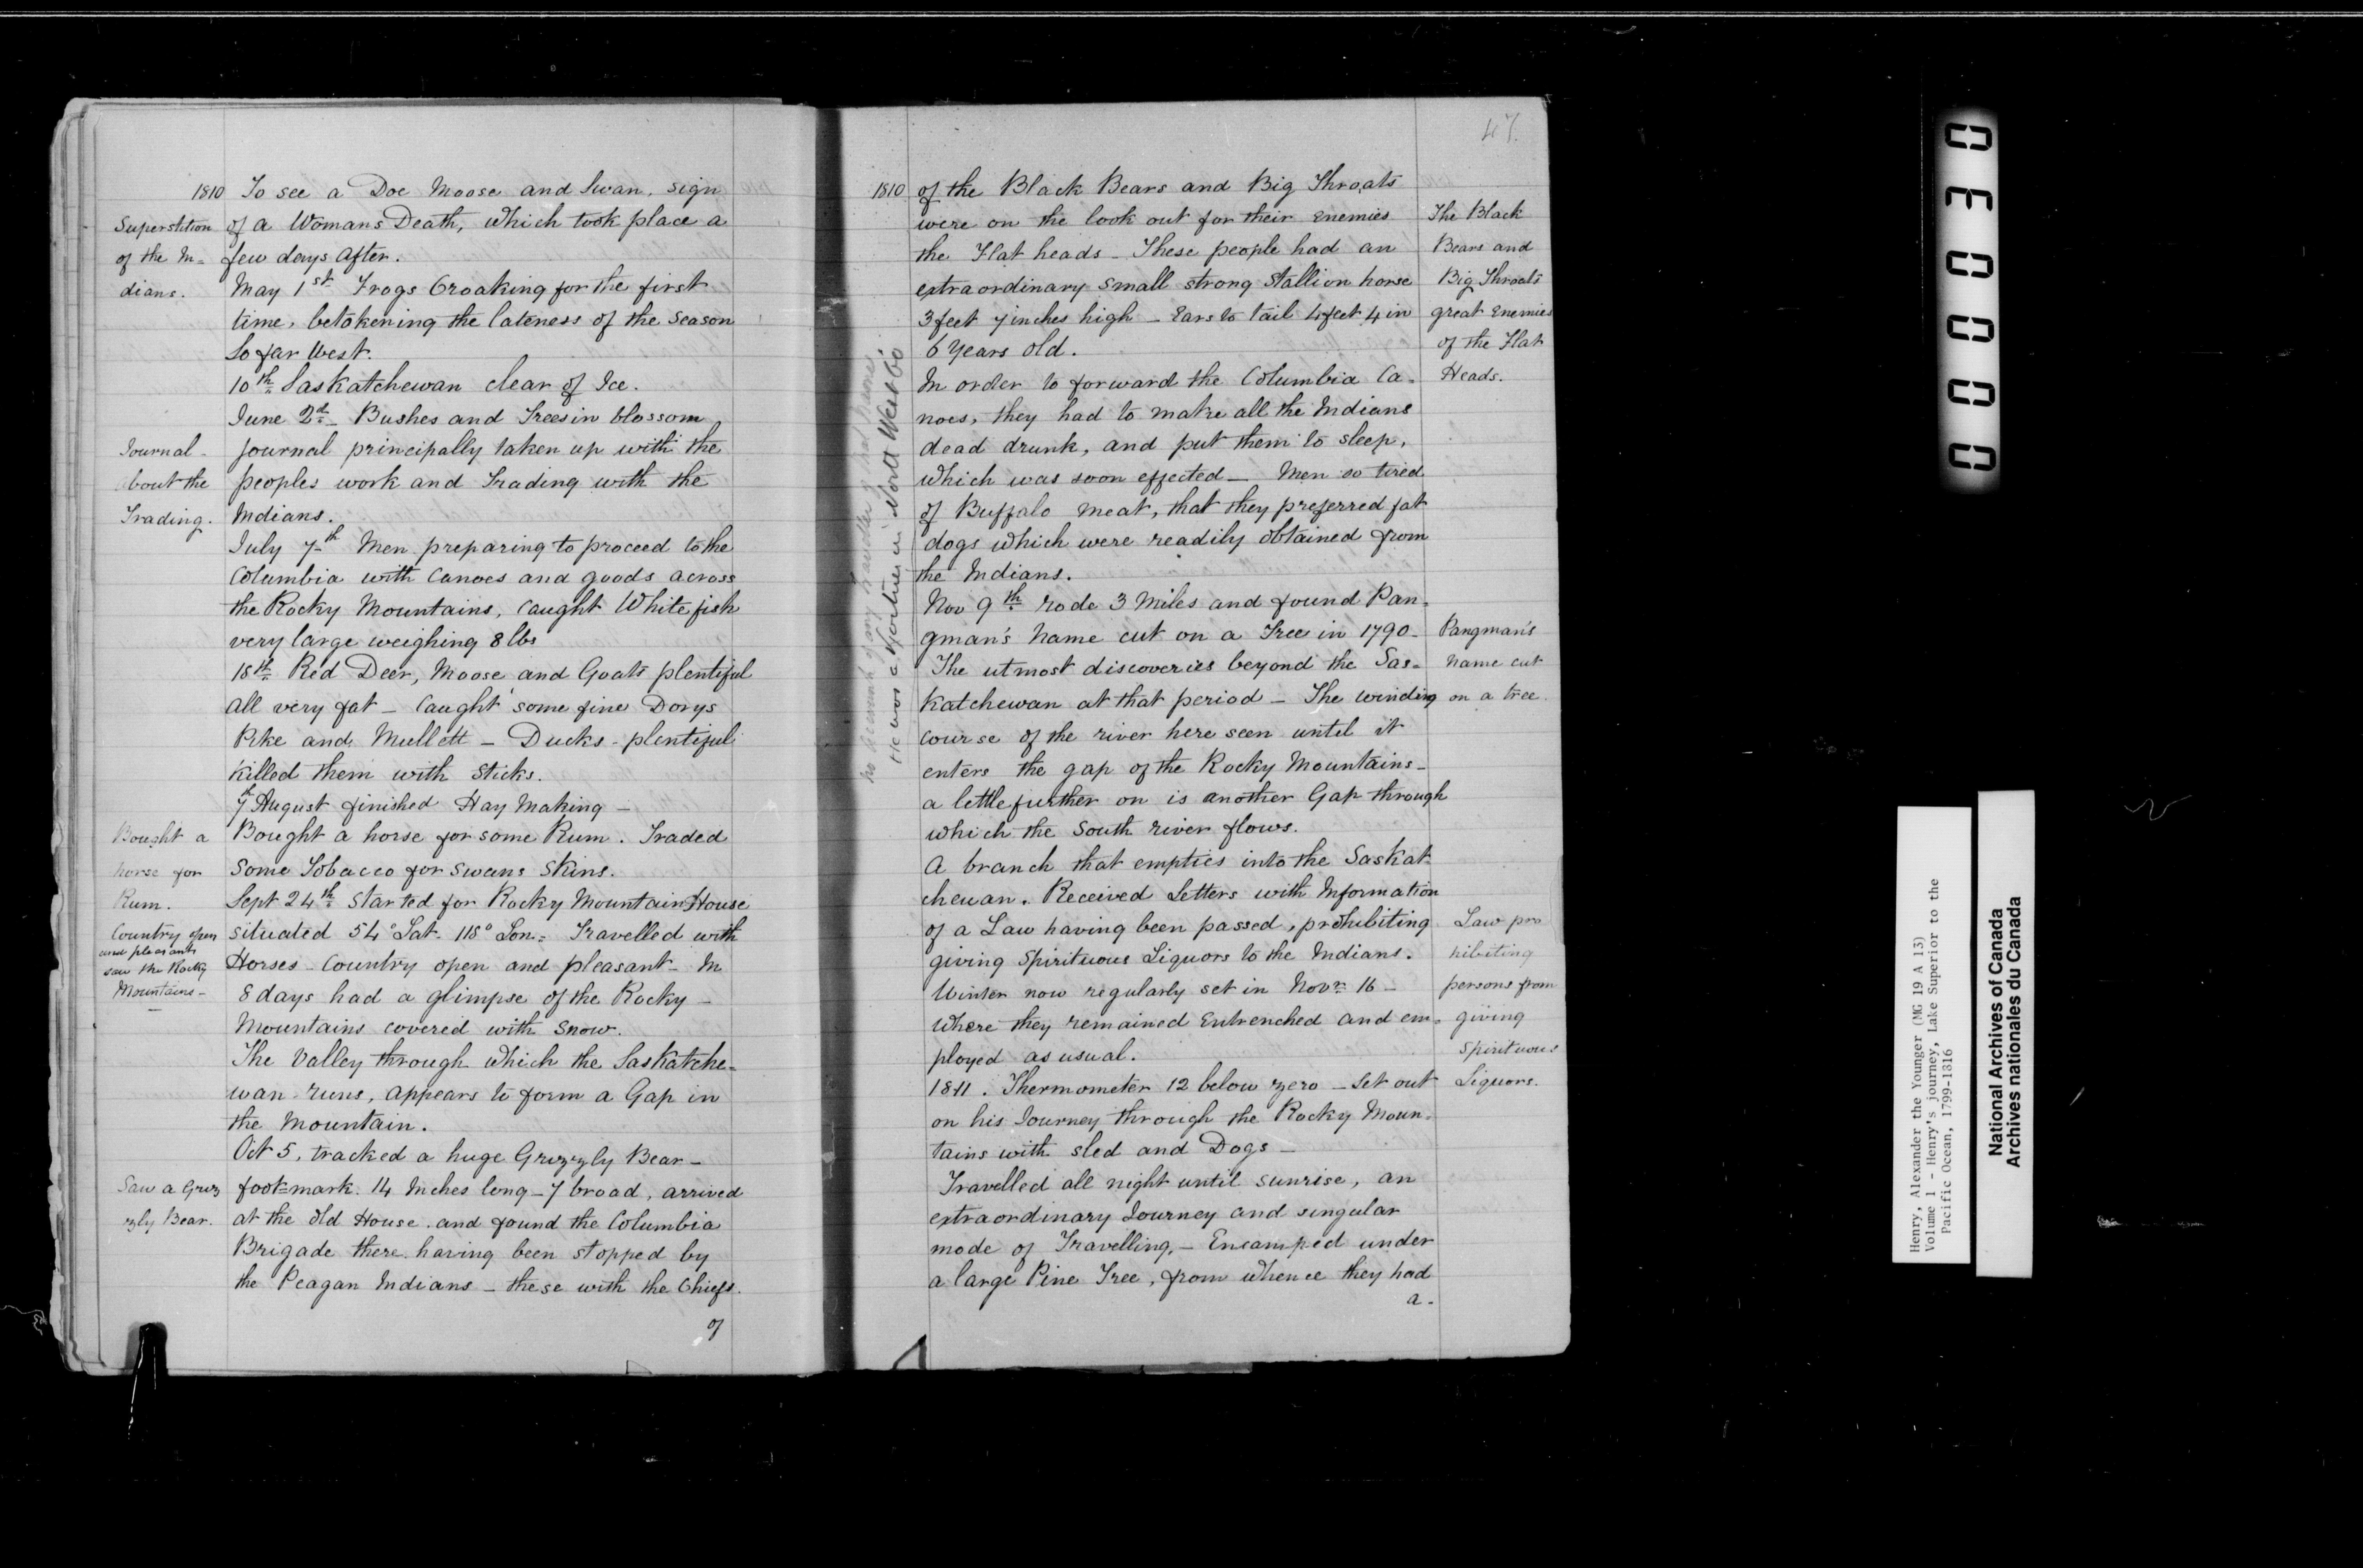 1810 To see a Doe Moose and Swan, sign
Superstition of a Womans Death, which took place a
of the In= few days after.
dians. May 1st Frogs Croaking for the first
time, betokening the lateness of the Season
So far West.
10th Saskatchewan clear of Ice.
June 2d Bushes and Trees in blossom
Journal - Journal principally taken up with the
about the peoples work and Trading with the
Trading. Indians.
July 7th Men preparing to proceed to the
Columbia with Canoes and goods across
the Rocky Mountains, caught White fish
very large weighing 8 lbs
18th Red Deer, Moose and Goats plentiful
all very fat - Caught some fine Dorys
Pike and Mullett - Ducks - plentiful
killed them with sticks.
7th August finished Hay Making -
Bought a Bought a horse for some Rum. Traded
horse for Some Tobacco for Swans Skins.
Rum. Sept 24th Started for Rocky Mountain House
Country open situated 54° Lat. 118° Lon= Travelled with
and pleasant
saw the Rocky Horses - Country open and pleasant - In
Mountains - 8 days had a glimpse of the Rocky -
Mountains covered with Snow.
The Valley through which the Saskatche=
wan runs, appears to form a Gap in
the Mountain.
Oct 5, tracked a huge Grizzly Bear -
Saw a Griz foot=mark. 14 Inches long - 7 broad, arrived
zly Bear. at the old House and found the Columbia
Brigade there having been stopped by
the Peagan Indians - these with the Chiefs.
of
47.
1810 of the Black Bears and Big Throats
were on the look out for their Enemies The Black
the Flat heads - These people had an Bears and
extraordinary small strong Stallion horse Big Throats
3 feet 7 inches high - Ears to tail 4 feet 4 in great Enemies
6 Years old. of the Flat
In order to forward the Columbia Ca= Heads.
noes, they had to make all the Indians
dead drunk, and put them to sleep,
which was soon effected - Men so tired
of Buffalo meat, that they preferred fat
dogs which were readily obtained from
the Indians.
Nov 9th rode 3 Miles and found Pan=
gman's Name cut on a Tree in 1790 - Pangman's
The utmost discoveries beyond the Sas= name cut
katchewan at that period - The winding on a tree.
course of the river here seen until it
enters the gap of the Rocky Mountains -
a little further on is another Gap through
which the South river flows.
A branch that empties into the Saskat
chewan. Received Letters with Information
of a Law having been passed, prohibiting Law pro
giving Spirituous Liquors to the Indians. hibiting
Winter now regularly set in Novr 16 - persons from
Where they remained Entrenched and em= giving
ployed as usual. Spirituous
1811. Thermometer 12 below zero - Set out Liquors.
on his Journey through the Rocky Moun=
tains with sled and Dogs -
Travelled all night until sunrise, an
extraordinary Journey and singular
mode of Travelling, - Encamped under
a large Pine Tree, from whence they had
a -
He was a Partner in North West Co
000030
Henry, Alexander the Younger (MG 19 A 13)
Volume 1 - Henry's journey, Lake Superior to the
Pacific Ocean, 1799-1816
National Archives of Canada
Archives nationales du Canada